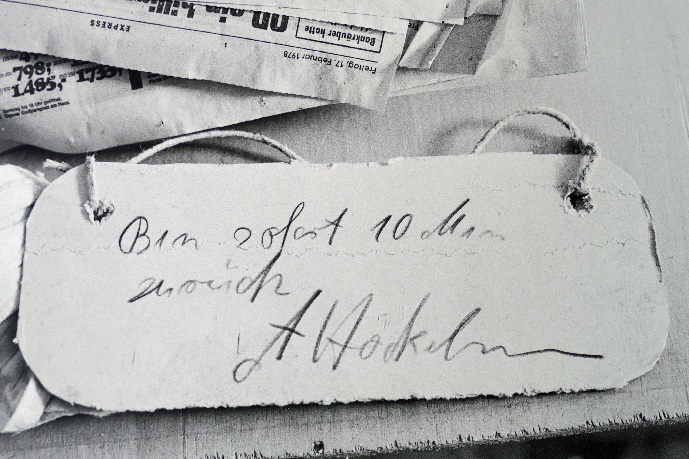 EXPRESS
Bankräuber hatte
Freitag, 17. Februar 1978
798,-
1.485,- 1.735,-
Bin sofort 10 Min
zurück
A. Höckelm